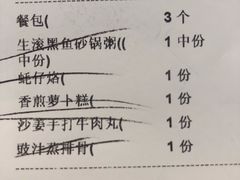 餐包( 3 个
生滚黑鱼砂锅粥(( 1 中份
中份)
蚝仔烙( 1 份
香煎萝卜糕( 1 份
沙姜手打牛肉丸( 1 份
豉汁蒸排骨( 1 份